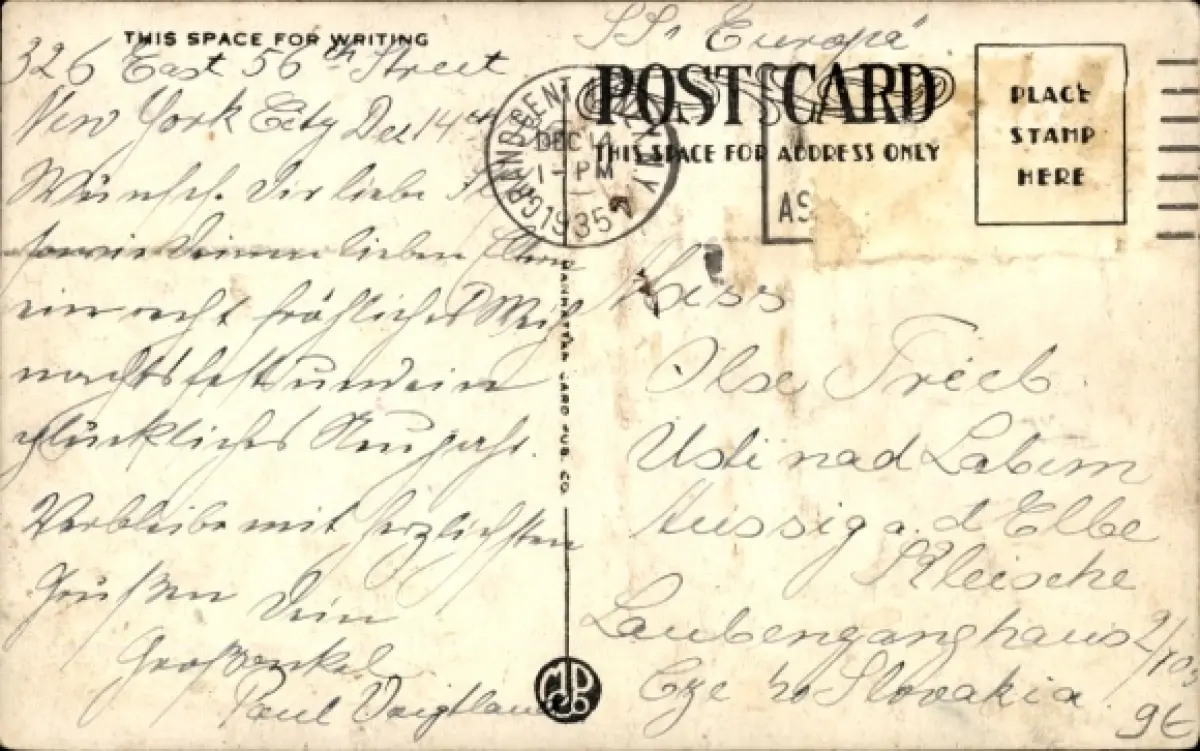 THIS SPACE FOR WRITING
326 East 56th Street
New York City Dec 14th
Wünsche Dir liebe
sowie Deinen lieben Eltern
ein recht fröhliches Weih
nachtsfest und ein
glückliches Neujahr.
Verbleibe mit herzlichsten
Grüßen Dein
Großonkel
Paul Voigtlan
GRAND CENT N.Y.
DEC 14
1-PM
1935
SS. Europa
POST CARD
THIS SPACE FOR ADDRESS ONLY
PLACE
STAMP
HERE
AS
Miss
Ilse Trieb
Usti nad Labem
Aussig a. d Elbe
Kleische
Laubenganghaus
Slovakia
MANHATTAN CARD PUB. CO